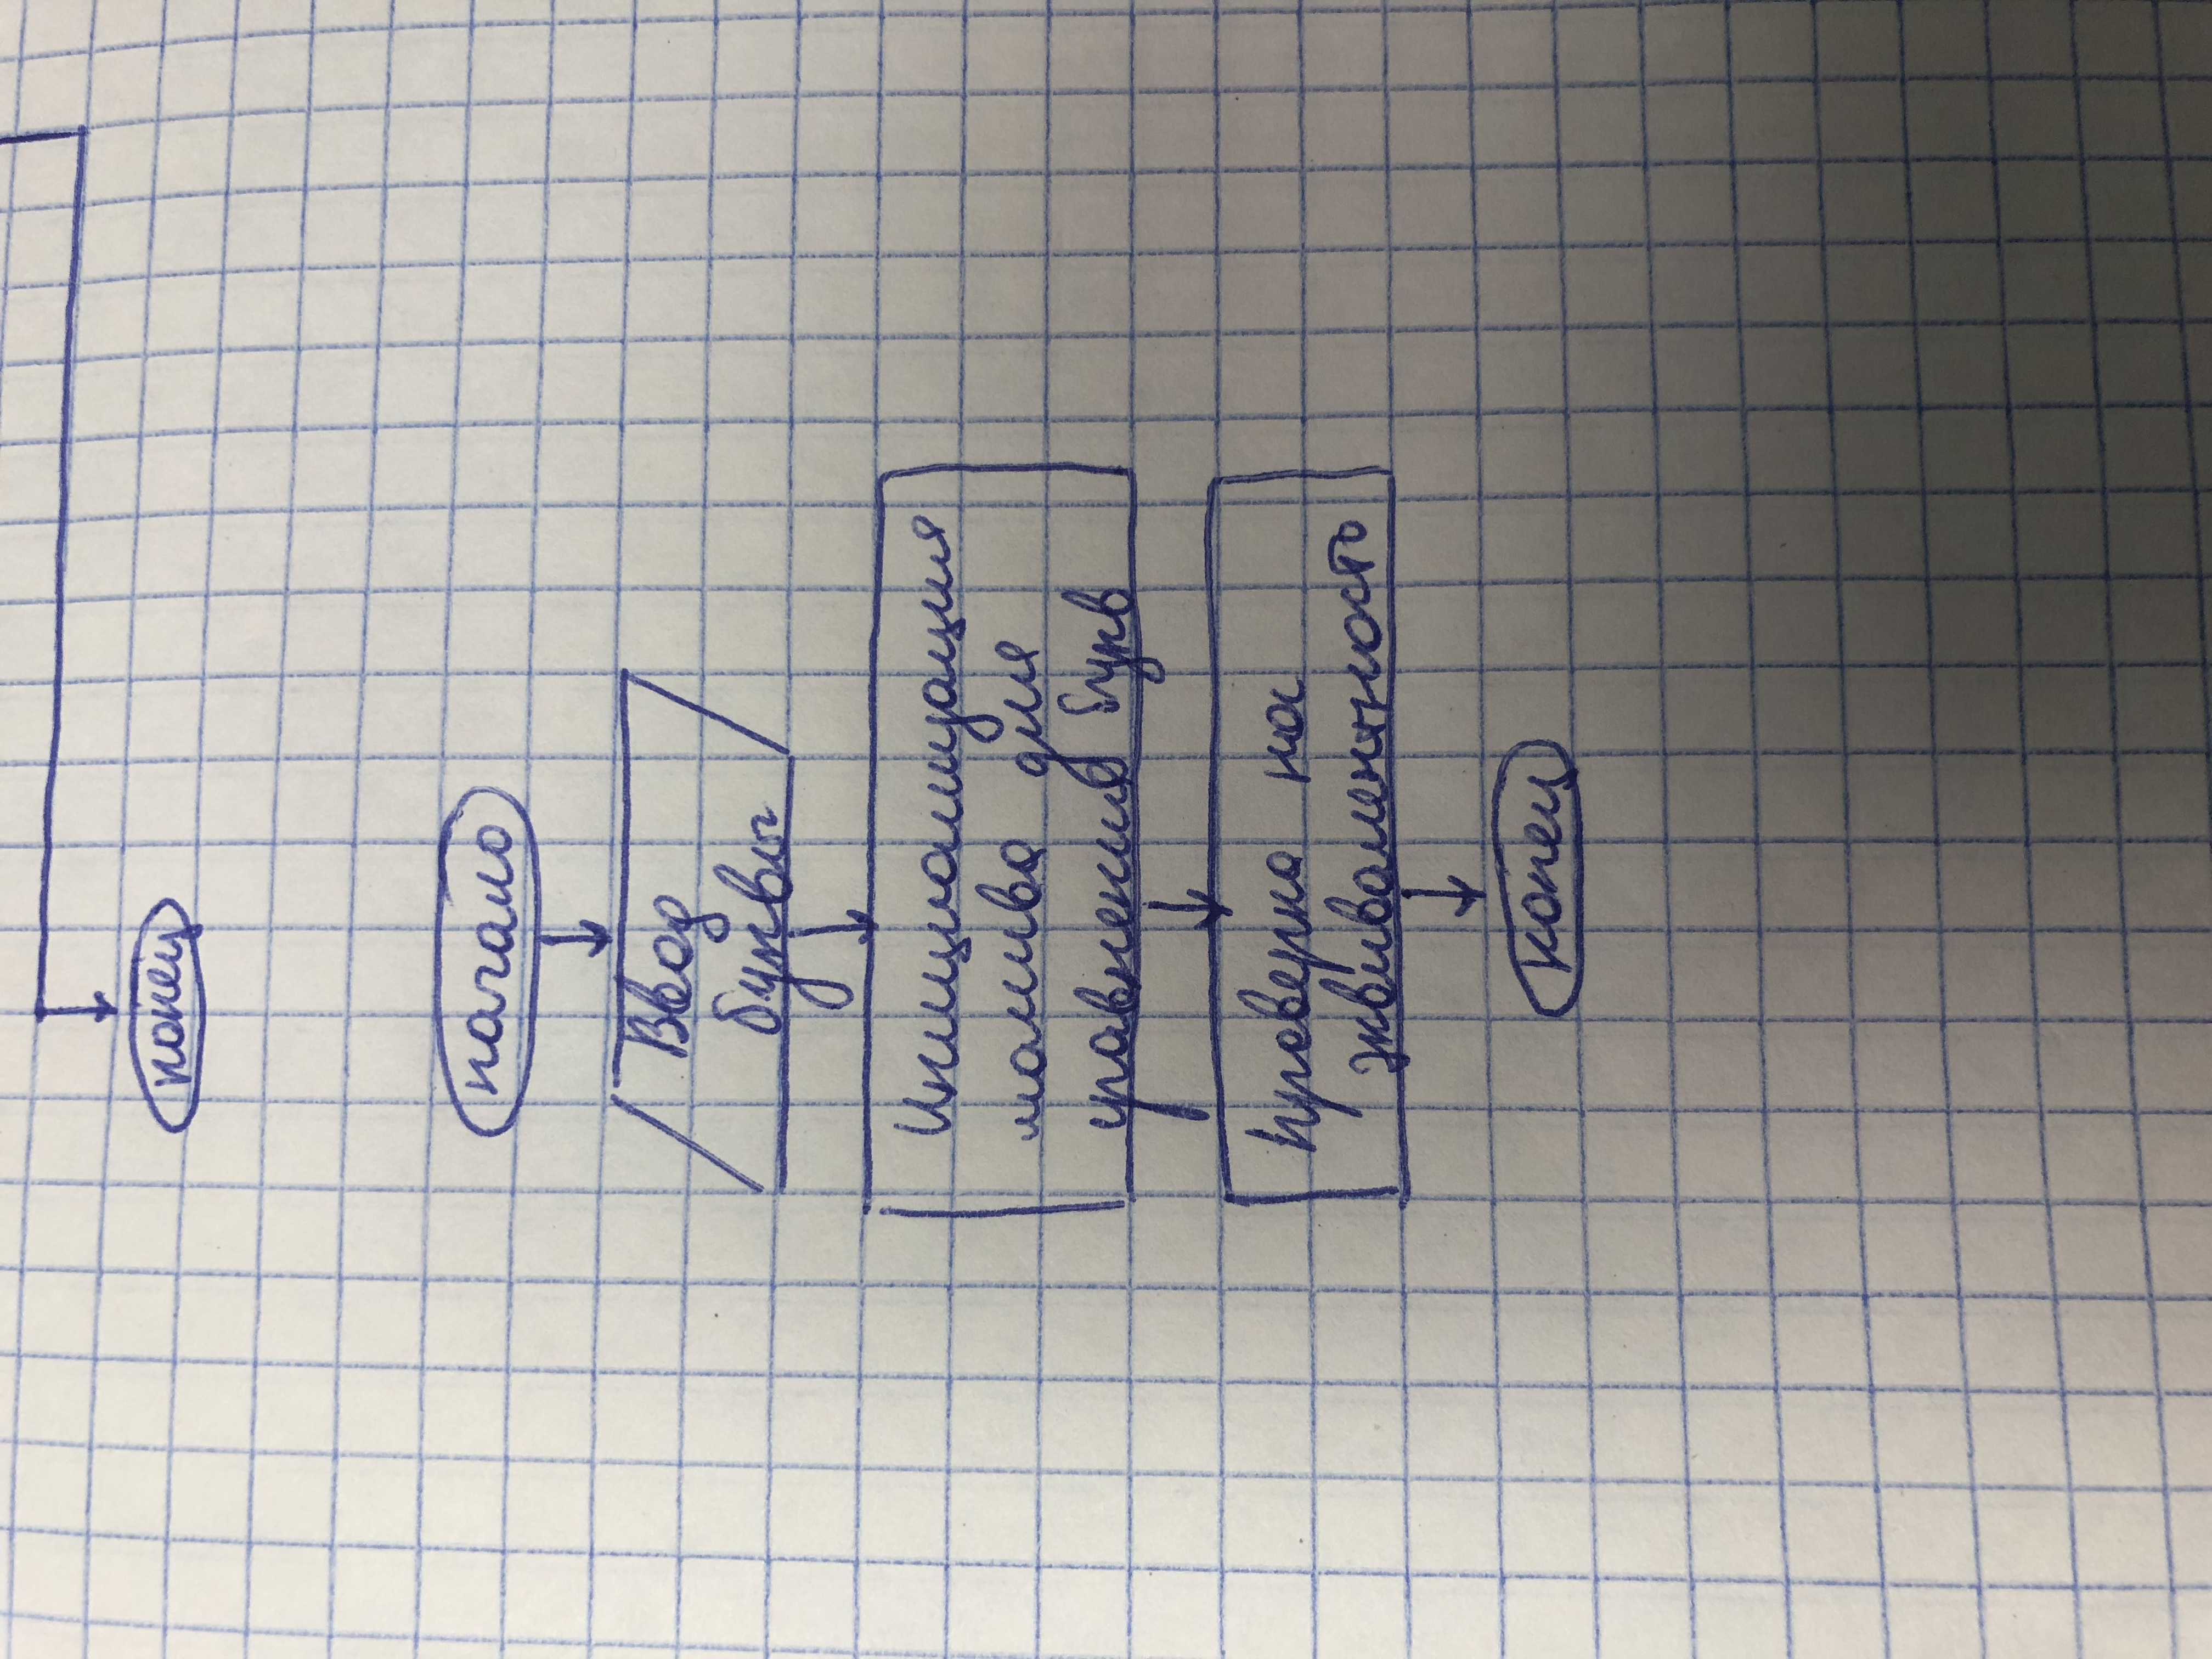 конец
начало
Ввод
буквы
Инициализация
массива для
уравнения букв
Проверка на
эквивалентность
конец